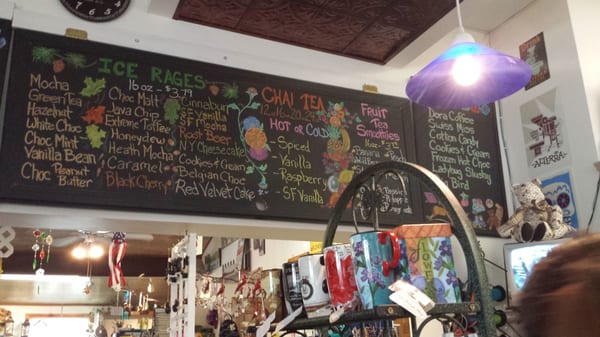 ICE RAGES
16 oz - $3.79
Mocha
Green Tea
Hazelnut
White Choc
Choc Mint
Vanilla Bean
Choc Peanut
Butter
Choc Malt
Java Chip
Extreme Toffee
Honeydew
Heath Mocha
Caramel
Black Cherry
Cinnabun
SF Vanilla
SF Mocha
Root Beer
NY Cheesecake
Cookies & Cream
Belgian Choc
Red Velvet Cake
CHAI TEA
HOT or COLD
- Spiced
- Vanilla
- Raspberry
- SF Vanilla
Fruit
Tea
Smoothies
Dora Coffee
Swiss Miss
Cotton Candy
Cookies & Cream
Frozen Hot Choc
Ladybug Slushy
Bird